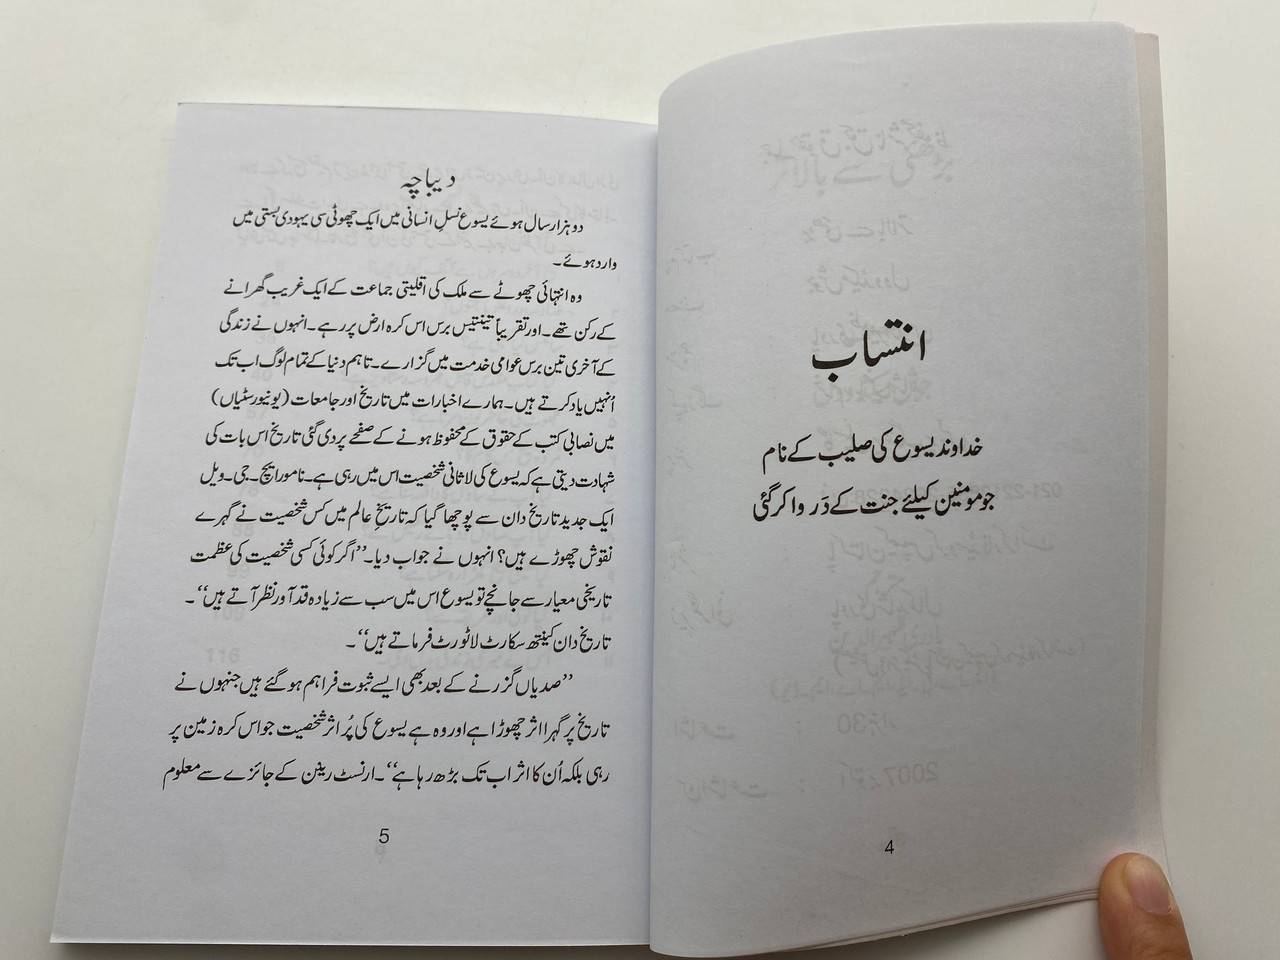 انتساب
خداوند یسوع کی صلیب کے نام
جو مومنین کیلئے جنت کے دَر وا کر گئی
4
دیباچہ
دو ہزار سال ہوئے یسوع نسلِ انسانی میں ایک چھوٹی سی یہودی بستی میں
وارد ہوئے۔
وہ انتہائی چھوٹے سے ملک کی اقلیتی جماعت کے ایک غریب گھرانے
کے رکن تھے۔ اور تقریباً تینتیس برس اس کرہ ارض پر رہے۔ انہوں نے زندگی
کے آخری تین برس عوامی خدمت میں گزارے۔ تاہم دنیا کے تمام لوگ اب تک
اُنہیں یاد کرتے ہیں۔ ہمارے اخبارات میں تاریخ اور جامعات (یونیورسٹیاں)
میں نصابی کتب کے حقوق کے محفوظ ہونے کے صفحے پر دی گئی تاریخ اس بات کی
شہادت دیتی ہے کہ یسوع کی لاثانی شخصیت اس میں رہی ہے۔ نامور ایچ۔ جی۔ ویل
ایک جدید تاریخ دان سے پوچھا گیا کہ تاریخِ عالم میں کس شخصیت نے گہرے
نقوش چھوڑے ہیں؟ انہوں نے جواب دیا۔ ’’اگر کوئی کسی شخصیت کی عظمت
تاریخی معیار سے جانچے تو یسوع اس میں سب سے زیادہ قد آور نظر آتے ہیں‘‘۔
تاریخ دان کینتھ سکارٹ لاٹورٹ فرماتے ہیں‘‘۔
’’صدیاں گزرنے کے بعد بھی ایسے ثبوت فراہم ہو گئے ہیں جنہوں نے
تاریخ پر گہرا اثر چھوڑا ہے اور وہ ہے یسوع کی پُر اثر شخصیت جو اس کرہ زمین پر
رہی بلکہ اُن کا اثر اب تک بڑھ رہا ہے‘‘۔ ارنسٹ رینن کے جائزے سے معلوم
5